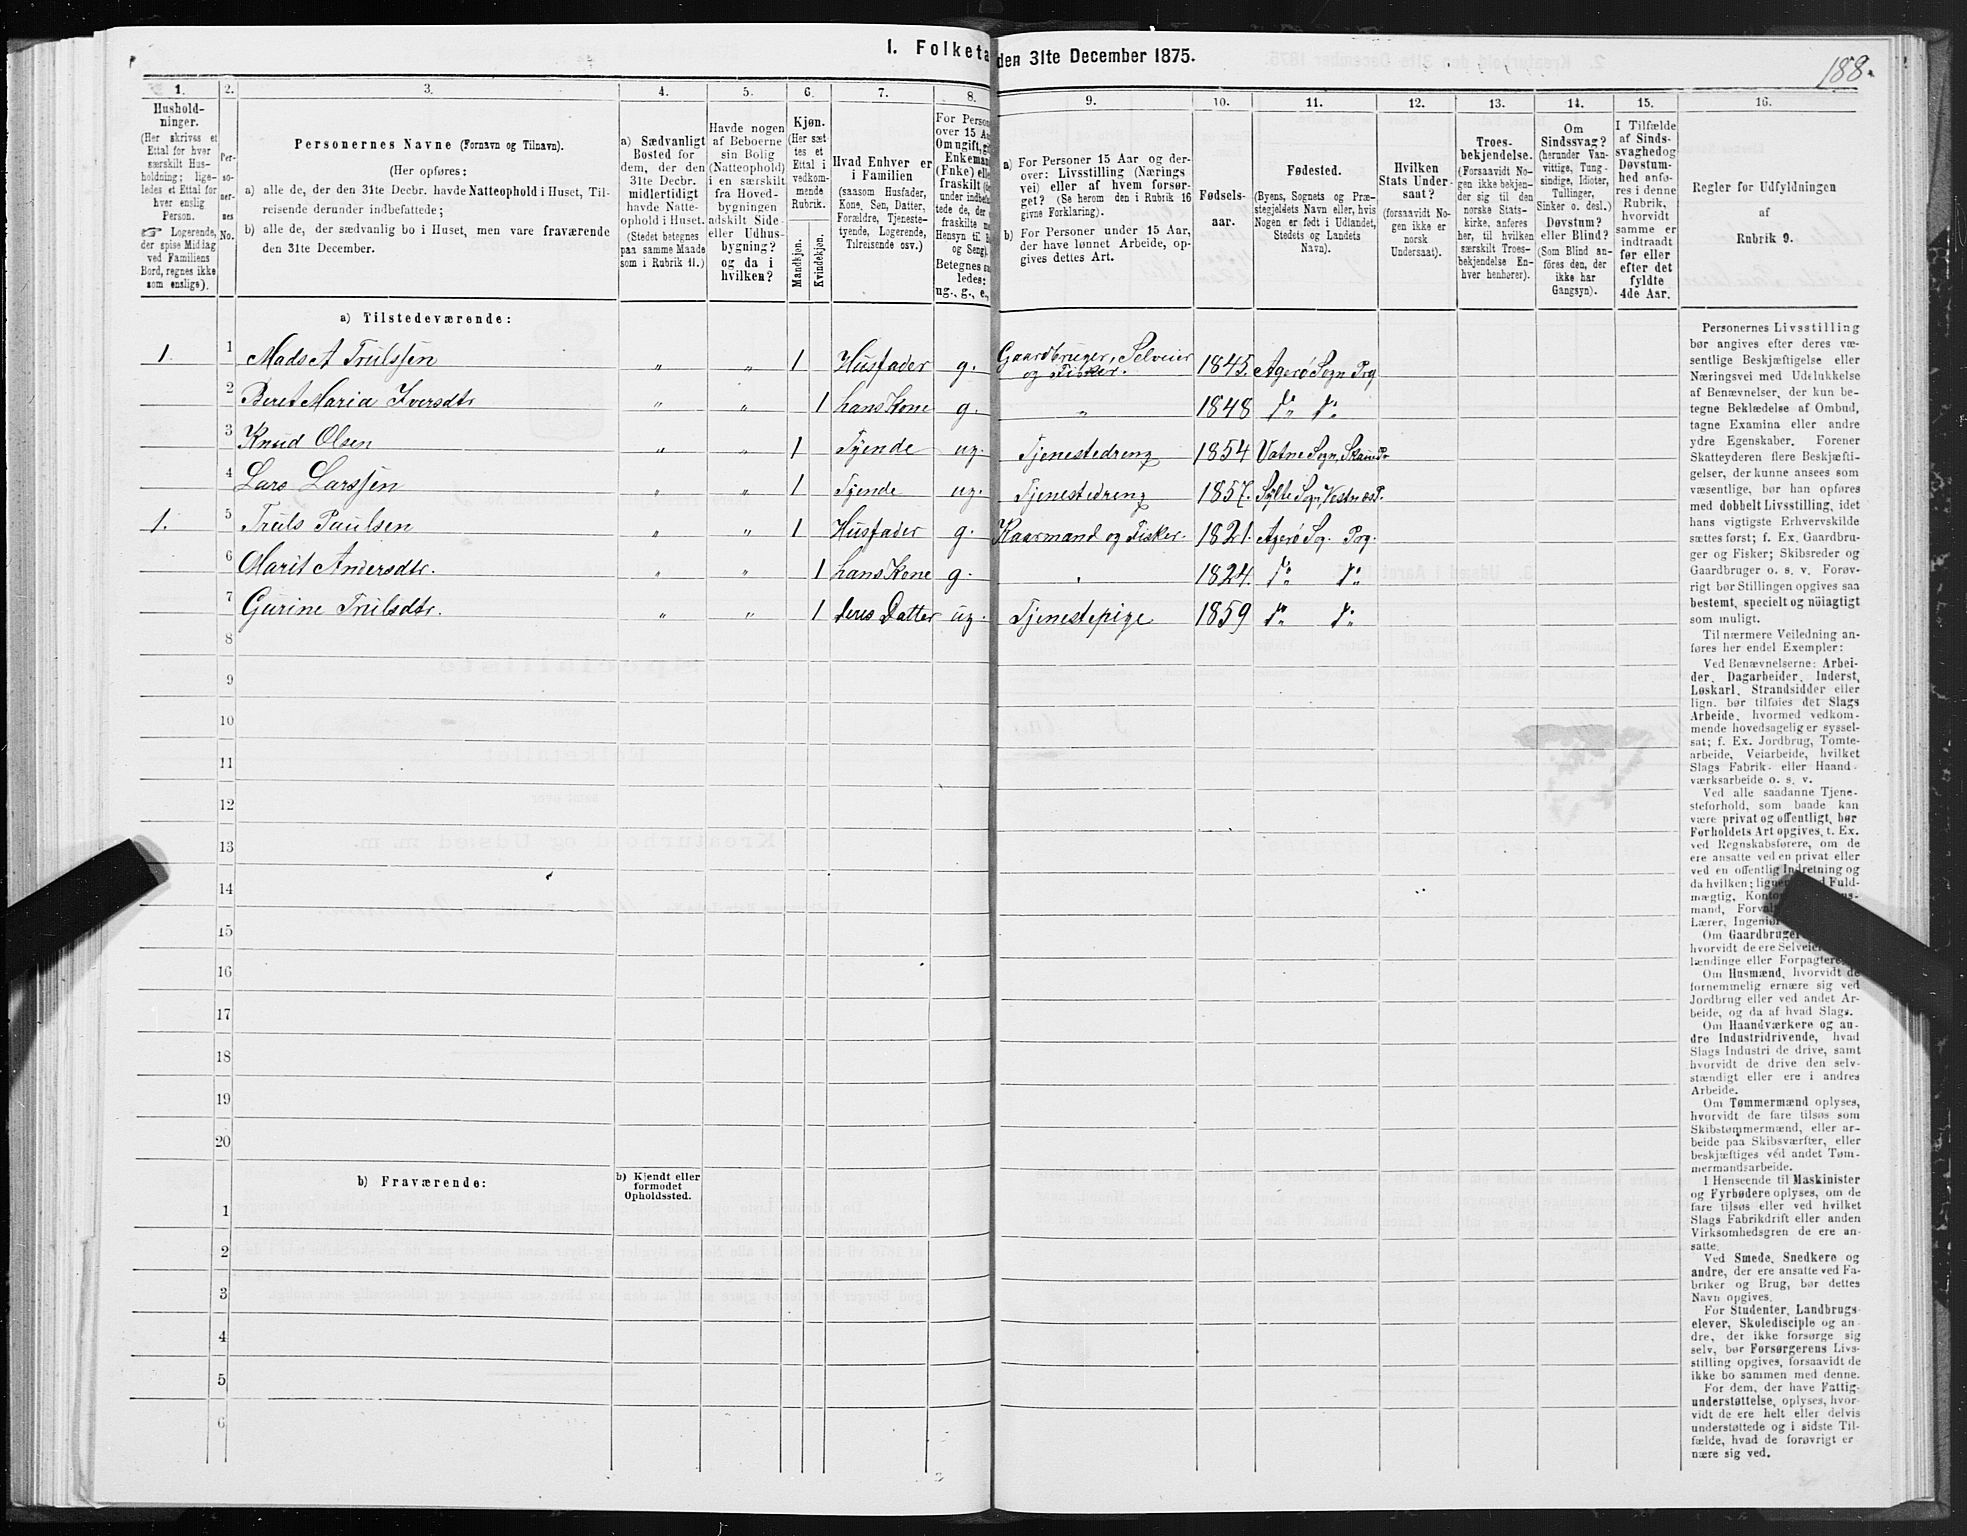 188.
I. Folketa den 31te December 1875.
1. 2. 3. 4. 5. 6. 7. 8. 9. 10. 11. 12. 13. 14. 15. 16.
Hushold-
ninger.
(Her skrives et
Ettal for hver
særskilt Hus-
holdning; lige-
ledes et Ettal for
hver enslig
Person.
☞ Logerende,
der spise Middag
ved Familiens
Bord, regnes ikke
som enslige).
Per-
so-
ner-
nes
No.
Personernes Navne (Fornavn og Tilnavn).
(Her opføres:
a) alle de, der den 31te Decbr. havde Natteophold i Huset, Til-
reisende derunder indbefattede;
b) alle de, der sædvanlig bo i Huset, men vare fraværende
den 31te December.
a) Sædvanligt
Bosted for
dem, der den
31te Decbr.
midlertidigt
havde Natte-
ophold i Huset.
(Stedet betegnes
paa samme Maade
som i Rubrik 11.)
Havde nogen
af Beboerne
sin Bolig
(Natteophold)
i en særskilt
fra Hoved-
bygningen
adskilt Side-
eller Udhus-
bygning?
og da i
hvilken?
Kjøn.
(Her sæt-
tes et
Ettal i
vedkom-
mende
Rubrik.
Mandkjøn.
Kvindekjøn.
Hvad Enhver er
i Familien
(saasom Husfader,
Kone, Søn, Datter,
Forældre, Tjeneste-
tyende, Logerende,
Tilreisende osv.)
For Person
over 15 Aa
Om ugift, gi
Enkeman
(Enke) elle
fraskilt (de
under indbefa
tede de, der
fraskilte m
Hensyn til B
og Seng).
Betegnes sa
ledes:
ug., g., e.,
a) For Personer 15 Aar og der-
over: Livsstilling (Nærings
vei) eller af hvem forsør-
get? (Se herom den i Rubrik 16
givne Forklaring).
b) For Personer under 15 Aar,
der have lønnet Arbeide, op-
gives dettes Art.
Fødsels-
aar.
Fødested.
(Byens, Sognets og Præ-
stegjeldets Navn eller, hvis
Nogen er født i Udlandet,
Stedets og Landets
Navn).
Hvilken
Stats Under-
saat?
(forsaavidt No-
gen ikke er
norsk
Undersaat).
Troes-
bekjendelse.
(Forsaavidt No-
gen ikke bekjen-
der sig til den
norske Stats-
kirke, anføres
her, til hvilken
særskilt Troes-
bekjendelse En-
hver henhører).
Om
Sindssvag?
(herunder Van-
vittige, Tung-
sindige, Idioter,
Tullinger,
Sinker o. desl.)
Døvstum?
eller Blind?
(Som Blind an-
føres den, der
ikke har
Gangsyn).
I Tilfælde
af Sinds-
svaghed og
Døvstum-
hed anfø-
res i denne
Rubrik,
hvorvidt
samme er
indtraadt
før eller
efter det
fyldte
4de Aar.
Regler for Udfyldningen
af
Rubrik 9.
a) Tilstedeværende:
1. 1 Mads A Trulssen „ „ 1 Husfader g. Gaardbruger, Selveier og Fisker. 1845. Agerö Sogn Prg
2 Beret Maria Iversdtr „ „ 1 hans Kone g. „ 1848 do do
3 Knud Olsen „ „ 1 Tyende ug. Tjenestedreng 1854 Vatne Sogn,
4 Lars Larssen „ „ 1 Tyende ug. Tjenestedreng 1857. Sylte Sogn, Vestnæs P.
1. 5 Truls Paulsen „ „ 1 Husfader g. Kaarmand og Fisker. 1821. Agerö Sog. Prg.
6 Marit Andersdtr. „ „ 1 hans Kone g. „ 1824. do do
7 Gurine Trulsdtr. „ „ 1 deres Datter ug. Tjenestepige 1859 do do
8
9
10
11
12
13
14
15
16
17
18
19
20
b) Fraværende:
b) Kjendt eller
formodet
Opholdssted.
1
2
3
4
5
6
Personernes Livsstilling
bør angives efter deres væ-
sentlige Beskjæftigelse eller
Næringsvei med Udelukkelse
af Benævnelser, der kun be-
tegne Beklædelse af Ombud,
tagne Examina eller andre
ydre Egenskaber. Forener
Skatteyderen flere Beskjæfti-
gelser, der kunne ansees som
væsentlige, bør han opføres
med dobbelt Livsstilling, idet
hans vigtigste Erhvervskilde
sættes først; f. Ex. Gaardbru-
ger og Fisker; Skibsreder og
Gaardbruger o. s. v. Forøv-
rigt bør Stillingen opgives saa
bestemt, specielt og nöiagtigt
som muligt.
Til nærmere Veiledning an-
føres her endel Exempler:
Ved Benævnelserne: Arbei-
der, Dagarbeider, Inderst,
Løskarl, Strandsidder eller
lign. bør tilføies det Slags
Arbeide, hvormed vedkom-
mende hovedsagelig er syssel-
sat; f. Ex. Jordbrug, Tomte-
arbeide, Veiarbeide, hvilket
Slags Fabrik- eller Haand-
værksarbeide o. s. v.
Ved alle saadanne Tjene-
steforhold, som baade kan
være privat og offentligt, bør
Forholdets Art opgives, t. Ex.
ved Regnskabsførere, om de
ere ansatte ved en privat eller
ved en offentlig Indretning og
da hvilken; lignen d Fuld-
mægtig, Konto s-
mand, Forval
Lærer, Ingeniør
Om Gaardbruger
hvorvidt de ere Selveier
lændinge eller Forpagtere.
Om Husmænd, hvorvidt de
fornemmelig ernære sig ved
Jordbrug eller ved andet Ar-
beide, og da af hvad Slags.
Om Haandværkere og an-
dre Industridrivende, hvad
Slags Industri de drive, samt
hvorvidt de drive den selv-
stændigt eller ere i andres
Arbeide.
Om Tømmermænd oplyses,
hvorvidt de fare tilsøs som
Skibstømmermænd, eller ar-
beide paa Skibsværfter, eller
beskjæftiges ved andet Tøm-
mermandsarbeide.
I Henseende til Maskinister
og Fyrbødere oplyses, om de
fare tilsøs eller ved hvilket
Slags Fabrikdrift eller anden
Virksomhedsgren de ere an-
satte.
Ved Smede, Snedkere og
andre, der ere ansatte ved Fa-
briker og Brug, bør dettes
Navn opgives.
For Studenter, Landbrugs-
elever, Skoledisciple og an-
dre, der ikke forsørge sig
selv, bør Forsørgerens Livs-
stilling opgives, forsaavidt de
ikke bo sammen med denne.
For dem, der have Fattig-
understøttelse, oplyses, hvor-
vidt de ere helt eller delvis
understøttede og i sidste Til-
fælde, hvad de forøvrigt er-
nære sig ved.